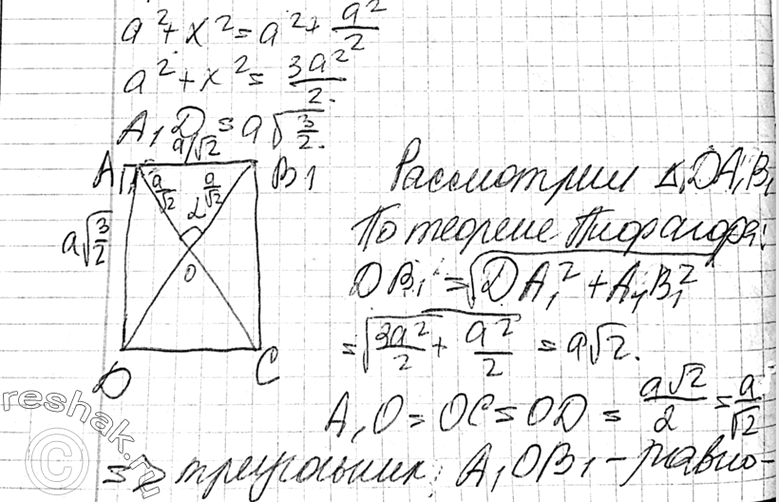 a²+x²=a²+a²/2
a²+x²=3a²/2.
A₁D=a√(3/2).
a/√2
A1 B1
a/√2 a/√2
α
a√(3/2)
O
D C
Рассмотрим △DA₁B₁
По теореме Пифагора:
DB₁=√(DA₁²+A₁B₁²)
=√(3a²/2+a²/2)=a√2.
A₁O=OC=OD=a√2/2=a/√2
=> треугольник A₁OB₁-равно-
reshak.ru
©